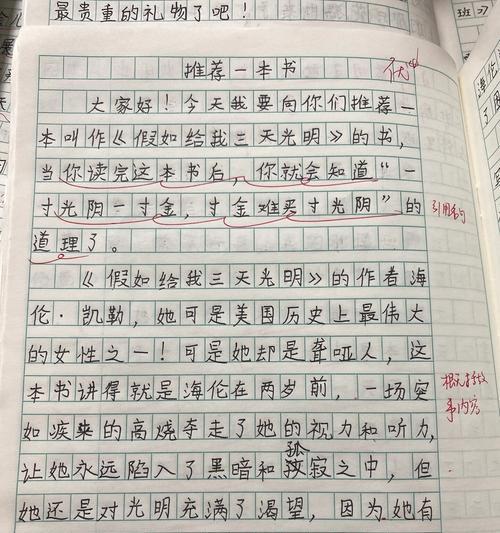 最贵重的礼物了吧！
推荐一本书
大家好！今天我要向你们推荐一
本叫作《假如给我三天光明》的书，
当你读完这本书后，你就会知道“一
寸光阴一寸金，寸金难买寸光阴”的
引用名句
道理了。
《假如给我三天光明》的作者海
伦·凯勒，她可是美国历史上最伟大
的女性之一！可是她却是聋哑人，这
本书讲得就是海伦在两岁前，一场突
如疾来的高烧夺走了她的视力和听力，
孤
让她永远陷入了黑暗和寂之中，但
她还是对光明充满了渴望，因为她有